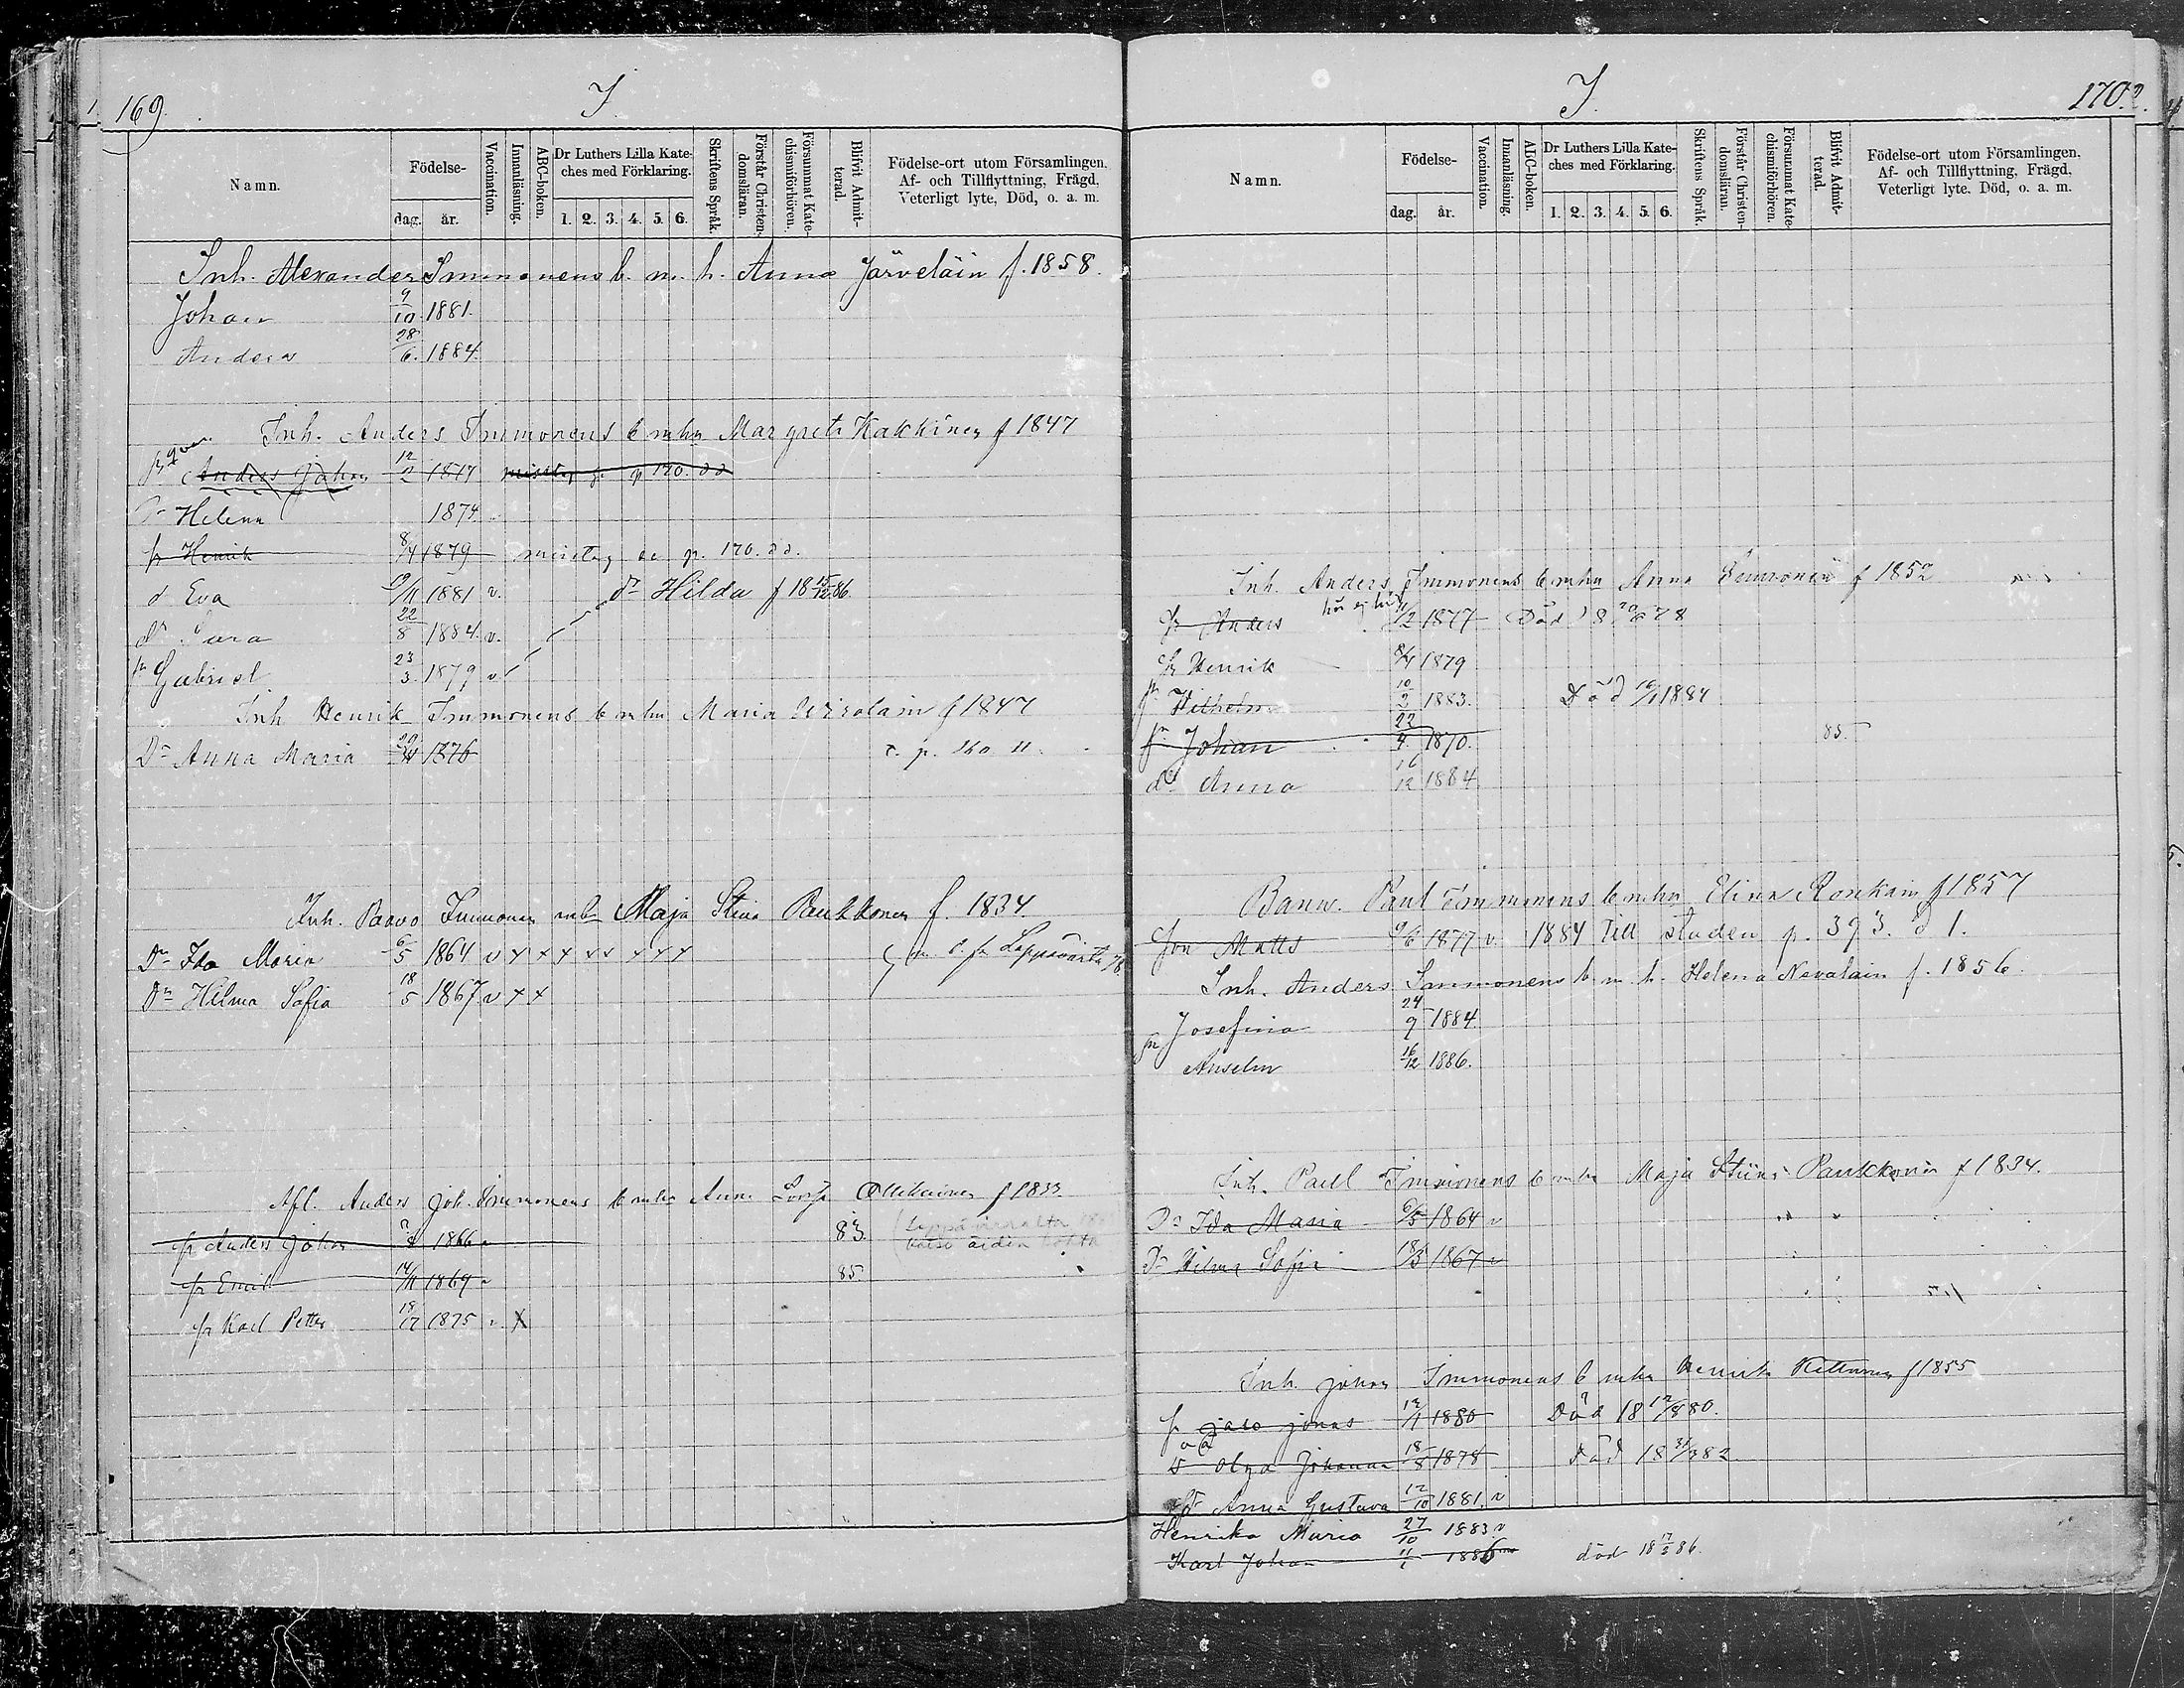 169.
I
Namn.
Födelse-
dag.
år.
Vaccination.
Innanläsning.
ABC-boken.
Dr Luthers Lilla Kate-
ches med Förklaring.
1. 2. 3. 4. 5. 6.
Skriftens Språk.
Förstår Christen-
domsläran.
Försummat Kate-
chismiförhören.
Blifvit Admit-
terad.
Födelse-ort utom Församlingen.
Af- och Tillflyttning, Frägd,
Veterligt lyte, Död, o. a. m.
Inh. Alexander Immonens b. m. h. Anna Järveläin f. 1858.
Johan 9/10 1881.
Anders 28/6. 1884.
Inh. Anders Immonens b mhu Margreta Kakkinen f 1847
Anders Johan 12/2 1877 misstag p 170.
Helena 1874
Henrik 8/4 1879 misstag se p. 170.
d Eva 19/11 1881 v. dr Hilda f 18 15/12 86
dr Sara 22/8 1884. v.
Gabriel 23/3. 1879 v
Inh Henrik Immonens b mhu Maria f 1847
Dr Anna Maria 1876
Inh. Paavo Immonen mb Maja Stina Paukkonen f. 1834.
Dr Ida Maria 6/5 1864 v x x x x x x x x Leppävirta 78
Dr Hilma Sofia 18/5 1867 v x x
Afl. Anders Joh. Immonens b mhu Anna Lovisa f 1833
Anders Johan 1866 v 83
Emil 14/11 1869 v 85
Karl Petter 19/12 1875 v. x
I.
170.
Namn.
Födelse-
dag.
år.
Vaccination.
Innanläsning.
ABC-boken.
Dr Luthers Lilla Kate-
ches med Förklaring.
1. 2. 3. 4. 5. 6.
Skriftens Språk.
Förstår Christen-
domsläran.
Försummat Kate-
chismiförhören.
Blifvit Admit-
terad.
Födelse-ort utom Församlingen.
Af- och Tillflyttning, Frägd,
Veterligt lyte, Död, o. a. m.
Inh. Anders Immonens b mhu Anna Immonen f 1852
Anders 1877 Död 18 20/6 78
Henrik 8/4 1879
Wilhelm 10/2 1883. Död 16/1 1884
Johan 22/4. 1870. 85.
dr Anna 16/12 1884
Paul Immonens b mhu Elina Ronkain f 1857
son Matts 9/6 1877 v. 1884 Till staden p. 393. d 1.
Inh. Anders Immonens b. m. h. Helena Navalain f. 1856.
Josefina 24/9 1884
Anselm 16/12 1886.
Inh. Paul Immonens b mhu Maja Stiina Paukkonen f 1834.
Dr Ida Maria 6/5 1864 v
Dr Hilma Sofia 18/5 1867 v
Inh. Johan Immonens b mhu Henrika f 1855
Jonas 12/1 1880 Död 18 12/8 80.
Olga Johanna 18/8 1878 Död 18 31/3 82
dr Anna Gustava 12/10 1881. v
Henrika Maria 27/10 1883 v
Karl Johan 11/1 1886 död 18 17/3 86.